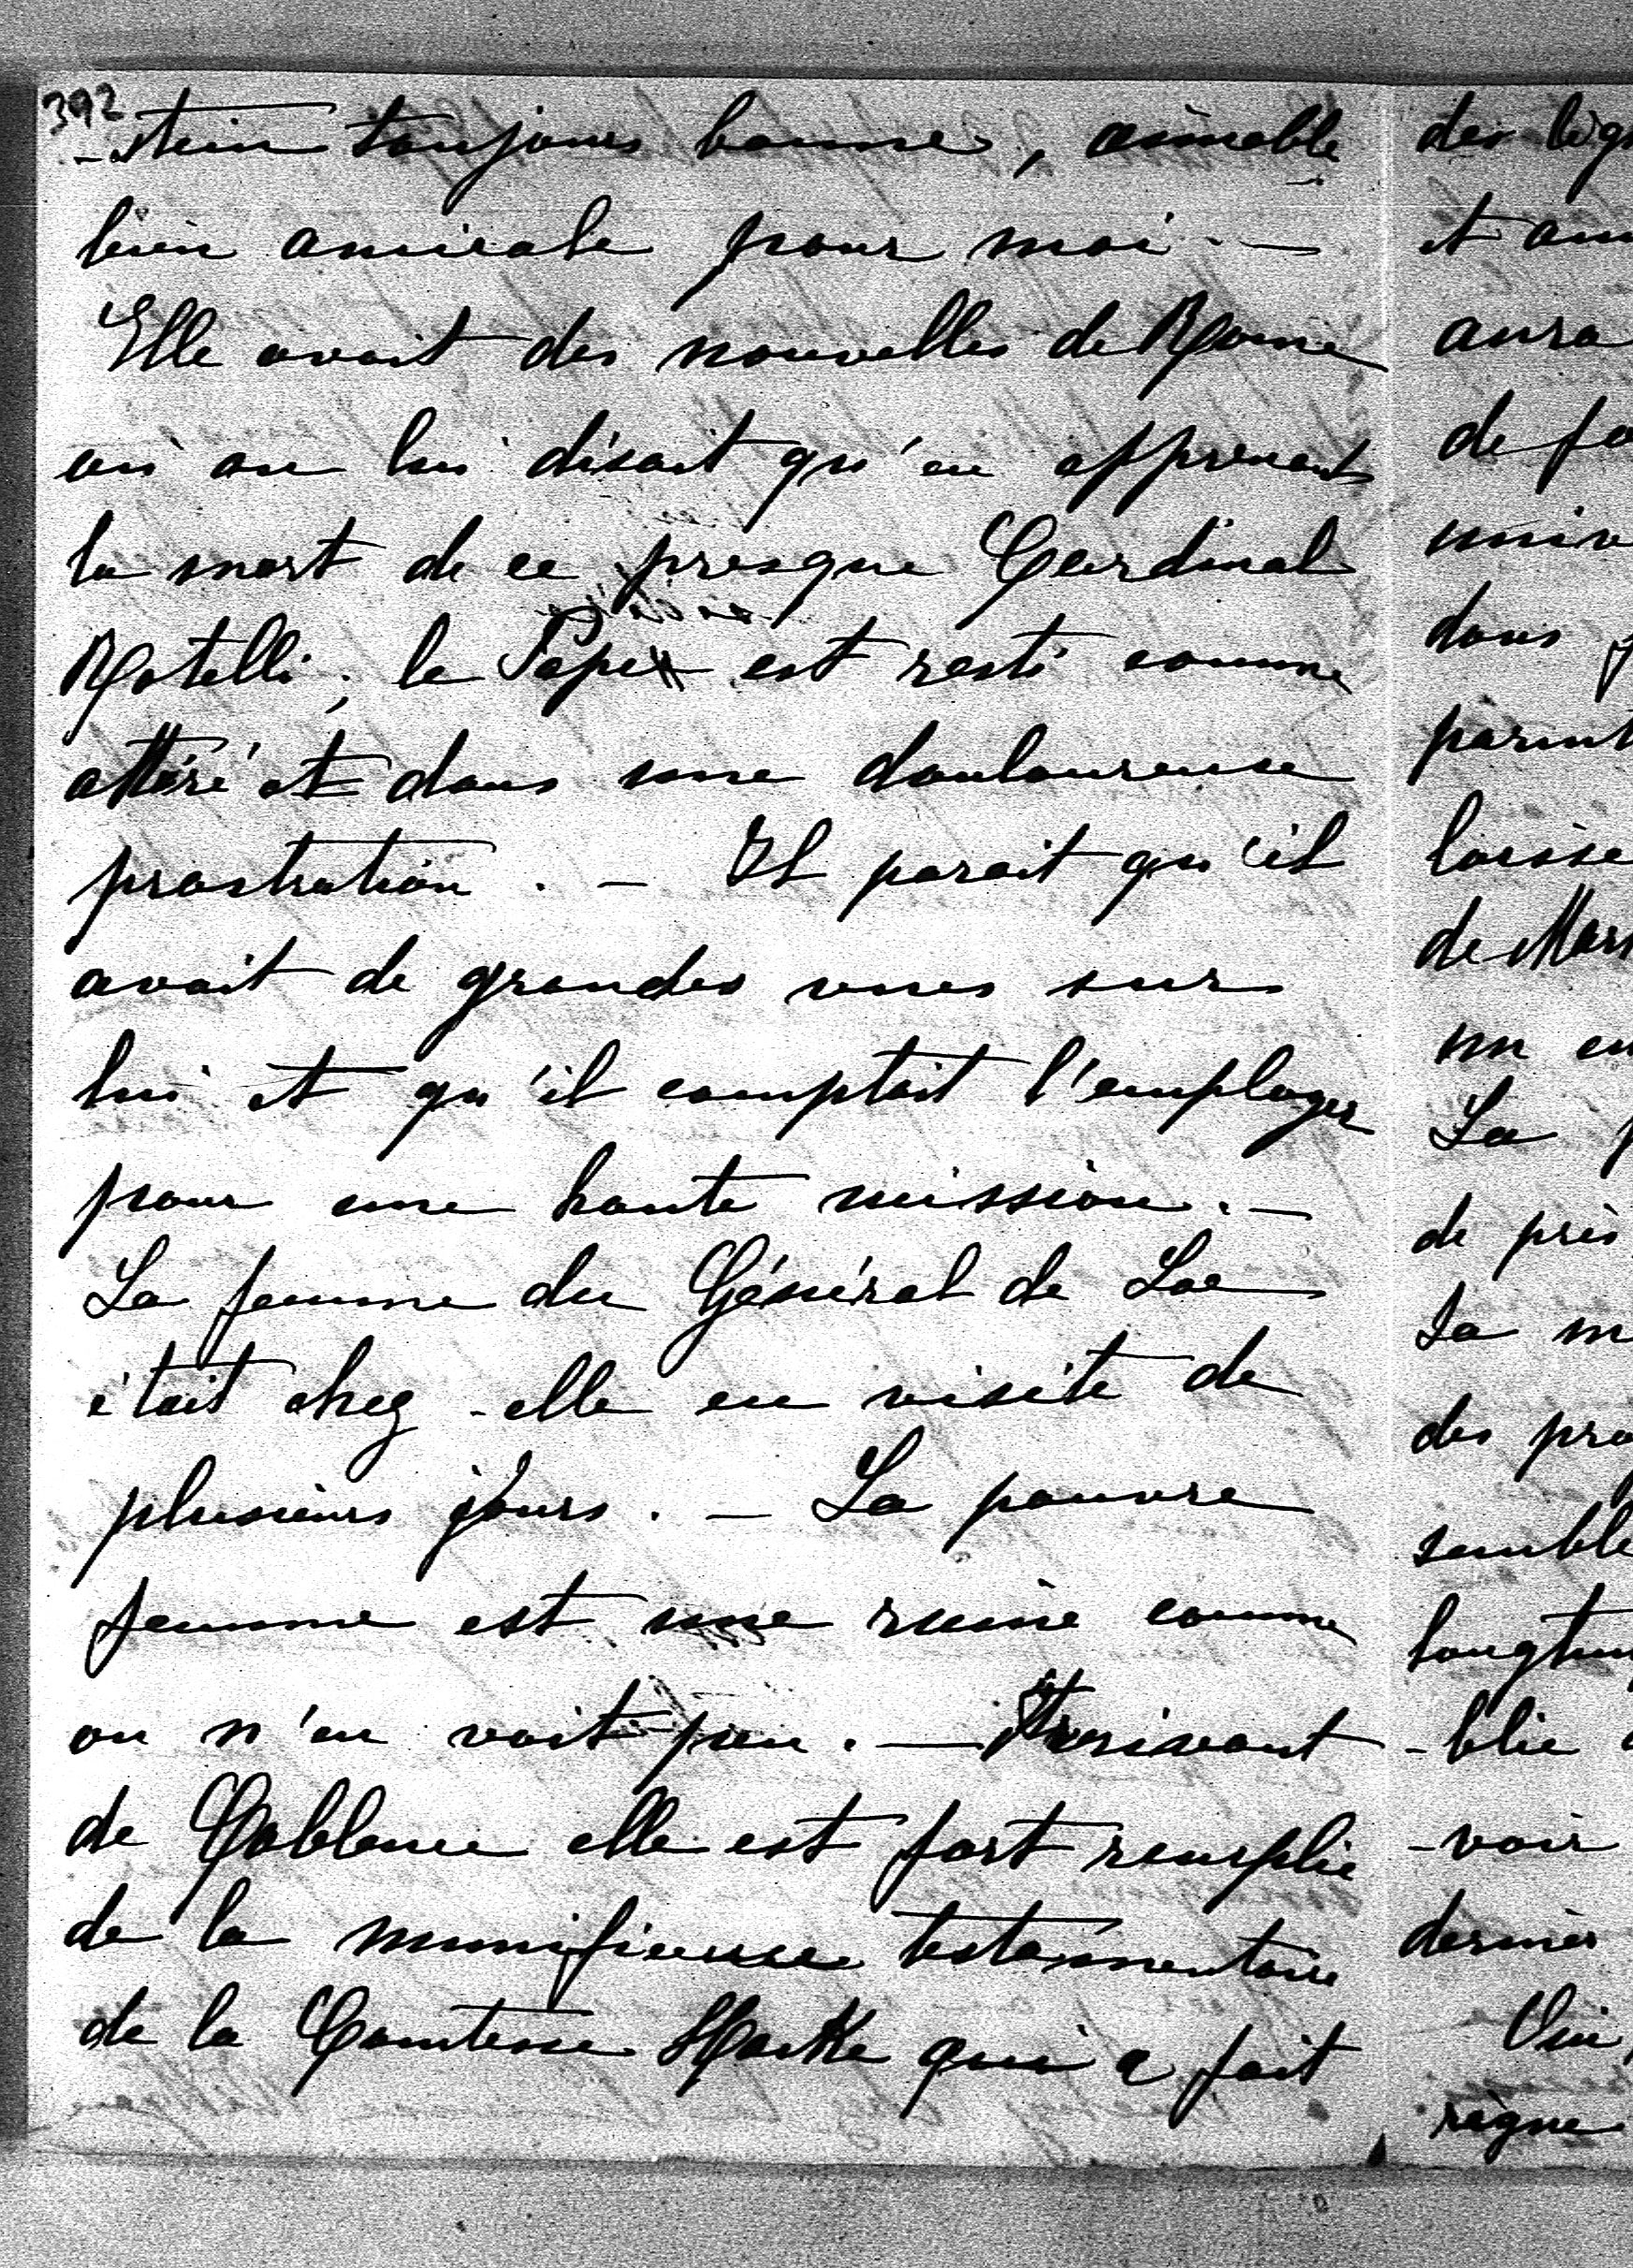 392
-stein toujours bonne, aimable
bien amicale pour moi. —
Elle avait des nouvelles de Rome
où on lui disait qu'en apprenant
la mort de ce presque Cardinal
Rotelli; le Pape est resté comme
attéré et dans une douloureuse
prostration. — Il parait qu'il
avait de grandes vues sur
lui et qu'il comptait l'employer
pour une haute mission. —
La femme du Général de Loe
était chez-elle en visite de
plusieurs jours. — La pauvre
femme est une ruine comme
on n'en voit peu. —
de Coblence elle est fort remplie
de la munificence testamentaire
de la Comtesse Hacke qui a fait
des
et
aura
de
dans
de
un
La
de près
sa
des
-blie
-voir
dernier
règne